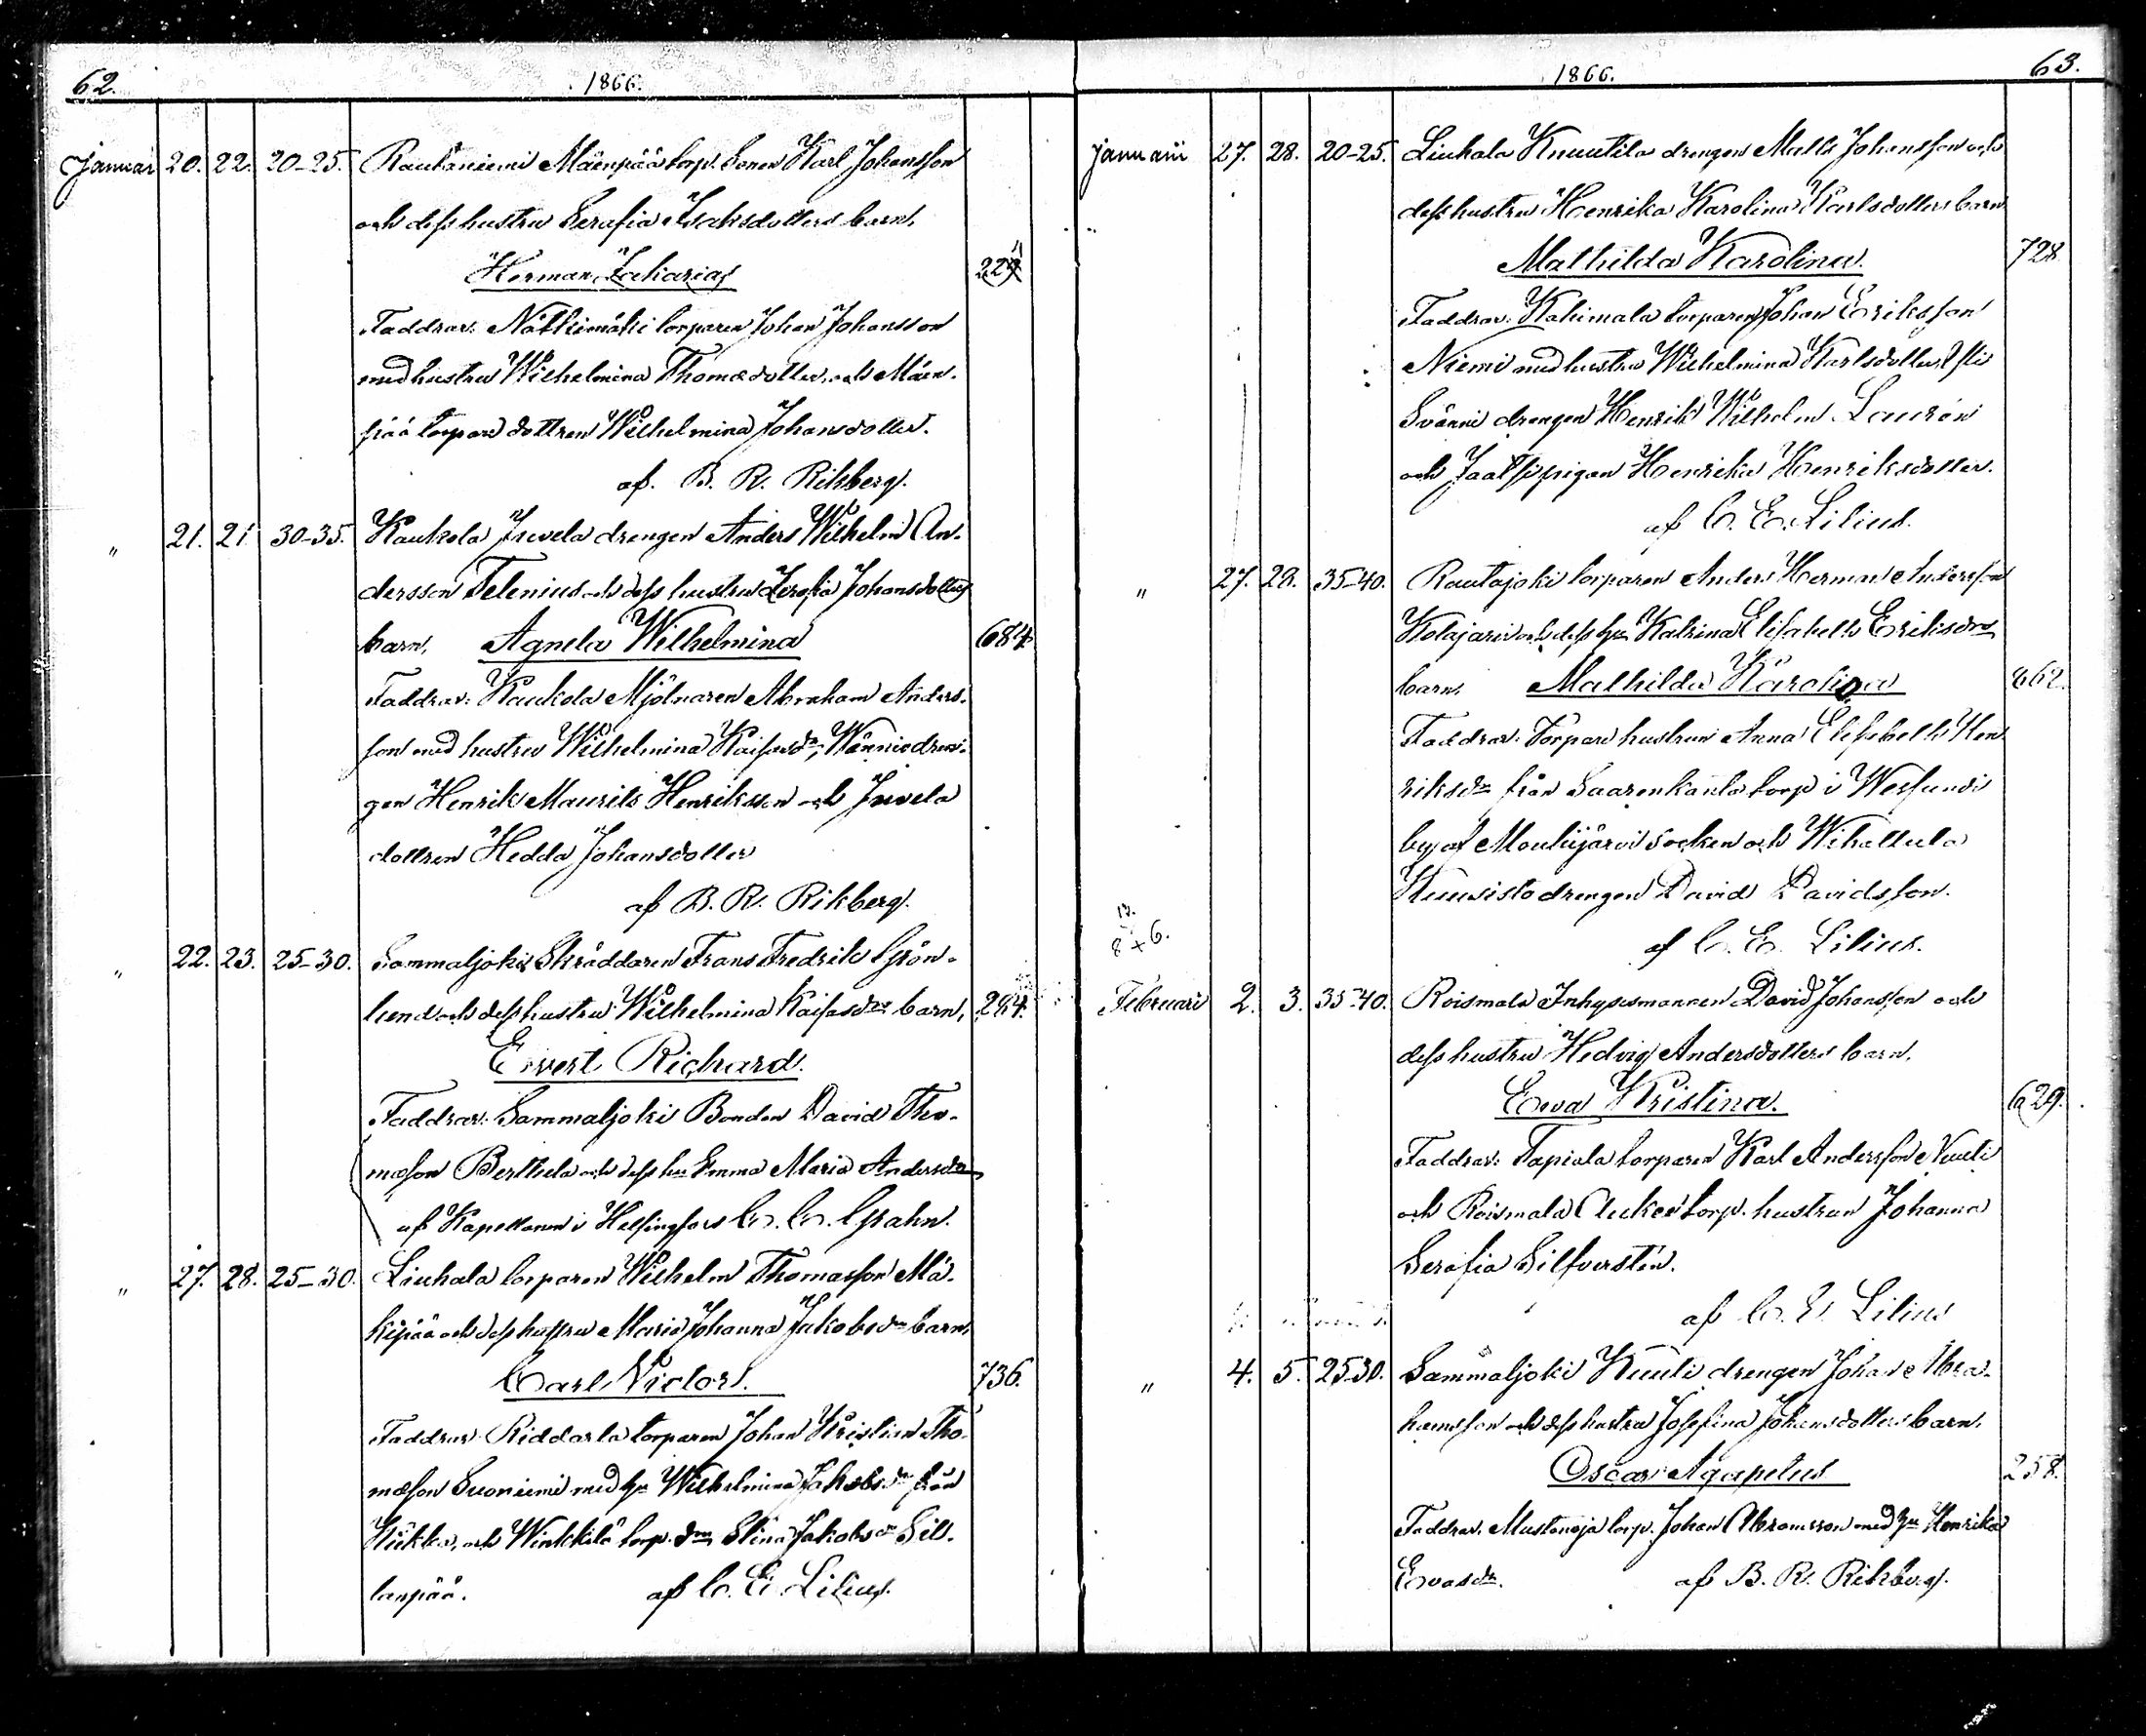 62. 1866.
Januari 20. 22. 20-25. Rautaniemi Mäenpää torp. Sonen Karl Johansson
och dess hustru Serafia Isaksdotters barn,
Herman Zakarias 224
Faddrar: Nätkimäki torparen Johan Johansson
med hustru Wilhelmina Thomædotter, och Mäen-
pää torpare dottren Wilhelmina Johansdotter.
af. B. R. Rikberg.
" 21. 21. 30-35. Kaukola Juvela drengen Anders Wilhelm An-
dersson Telenius och dess hustru Zerafia Johansdotters
barn, Agneta Wilhelmina 684.
Faddrar: Kaukola Mjölnaren Abraham Anders-
son med hustru Wilhelmina Kaisasdr, Wännis dren-
gen Henrik Maurits Henriksson och Juvela
dottren Hedda Johansdotter
af B. R. Rikberg.
" 22. 23. 25-30. Sammaljoki Skräddaren Frans Fredrik Grön-
lund och dess hustru Wilhelmina Kaisasdrs barn, 284.
Evert Richard.
Faddrar: Sammaljoki Bonden David Tho-
mæson Berthela och dess hu Emma Maria Andersdr
af Kapellanen i Helsingfors C. C. Grahn.
" 27. 28. 25-30. Liuhala torparen Wilhelm Thomasson Mä-
kipää och dess hustru Maria Johanna Jakobsdrs barn,
Carl Victor. 736.
Faddrar: Riddarla torparen Johan Kristian Tho-
mæson Suoniemi med hu Wilhelmina Jakobsdr från
och torp. Stina Jakobsdr Sil-
lanpää. af C. E. Lilius.
63. 1866.
Januari 27. 28. 20-25. Liuhala Knuutila drengen Matts Johansson och
dess hustru Henrika Karolina Karlsdotters barn
Mathilda Karolina. 728.
Faddrar: Kahimala torparen Johan Eriksson
Niemi med hustru Wilhelmina Karlsdotter,
drengen Henrik Wilhelm Laurén
och pigan Henrika Henriksdotter.
af C. E. Lilius.
" 27. 28. 35-40. Rautajoki torparen Anders Herman Andersson
Kolajärvi och dess hu Katrina Elisabeth Eriksdrs
barn, Mathilda Karolina 662.
Faddrar: Torpare hustrun Anna Elisabeth Hen
riksdr från Saarenkanta torp i Wesunds
by af Mouhijärvi socken och Wihattula
Kuusisto drengen David Davidsson.
af C. E. Lilius.
13.
8+6.
Februari 2. 3. 35-40. Roismala Inhysesmannen David Johansson och
dess hustru Hedvig Andersdotters barn,
Ewa Kristina. 629.
Faddrar: Tapiala torparen Karl Andersson
och Roismala torp. hustrun Johanna
Serafia Silfverstén.
af C. E. Lilius
" 4. 5. 25-30. Sammaljoki Knuuti drengen Johan Abra-
hamsson och dess hustru Josefina Johansdotters barn,
Oscar Agapetus 258.
Faddrar. Mustanoja torp. Johan Abramsson med hu Henrika
Evasdr. af B. R. Rikberg.